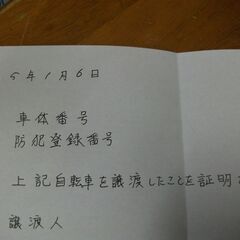 5年1月6日
車体番号
防犯登録番号
上記自転車を譲渡したことを証明
譲渡人